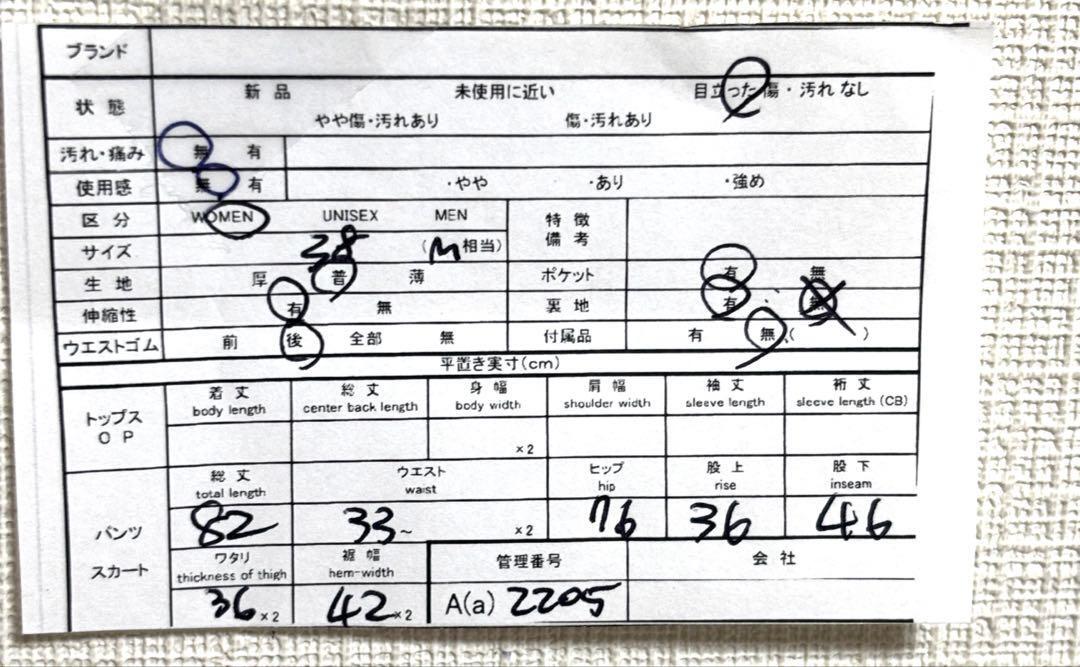 ブランド
状態 新品 未使用に近い 目立った傷・汚れなし
やや傷・汚れあり 傷・汚れあり
汚れ・痛み 無 有
使用感 無 有 ・やや ・あり ・強め
区分 WOMEN UNISEX MEN 特徴備考
サイズ 38 (M相当)
生地 厚 普 薄 ポケット 有 無
伸縮性 有 無 裏地 有 無
ウエストゴム 前 後 全部 無 付属品 有 無 ( )
平置き実寸(cm)
トップス OP 着丈 総丈 身幅 肩幅 袖丈 裄丈
body length center back length body width shoulder width sleeve length sleeve length (CB)
×2
パンツ スカート 総丈 ウエスト ヒップ 股上 股下
total length waist hip rise inseam
82 33~ ×2 76 36 46
ワタリ 裾幅 管理番号 会社
thickness of thigh hem-width
36×2 42×2 A(a) 2205